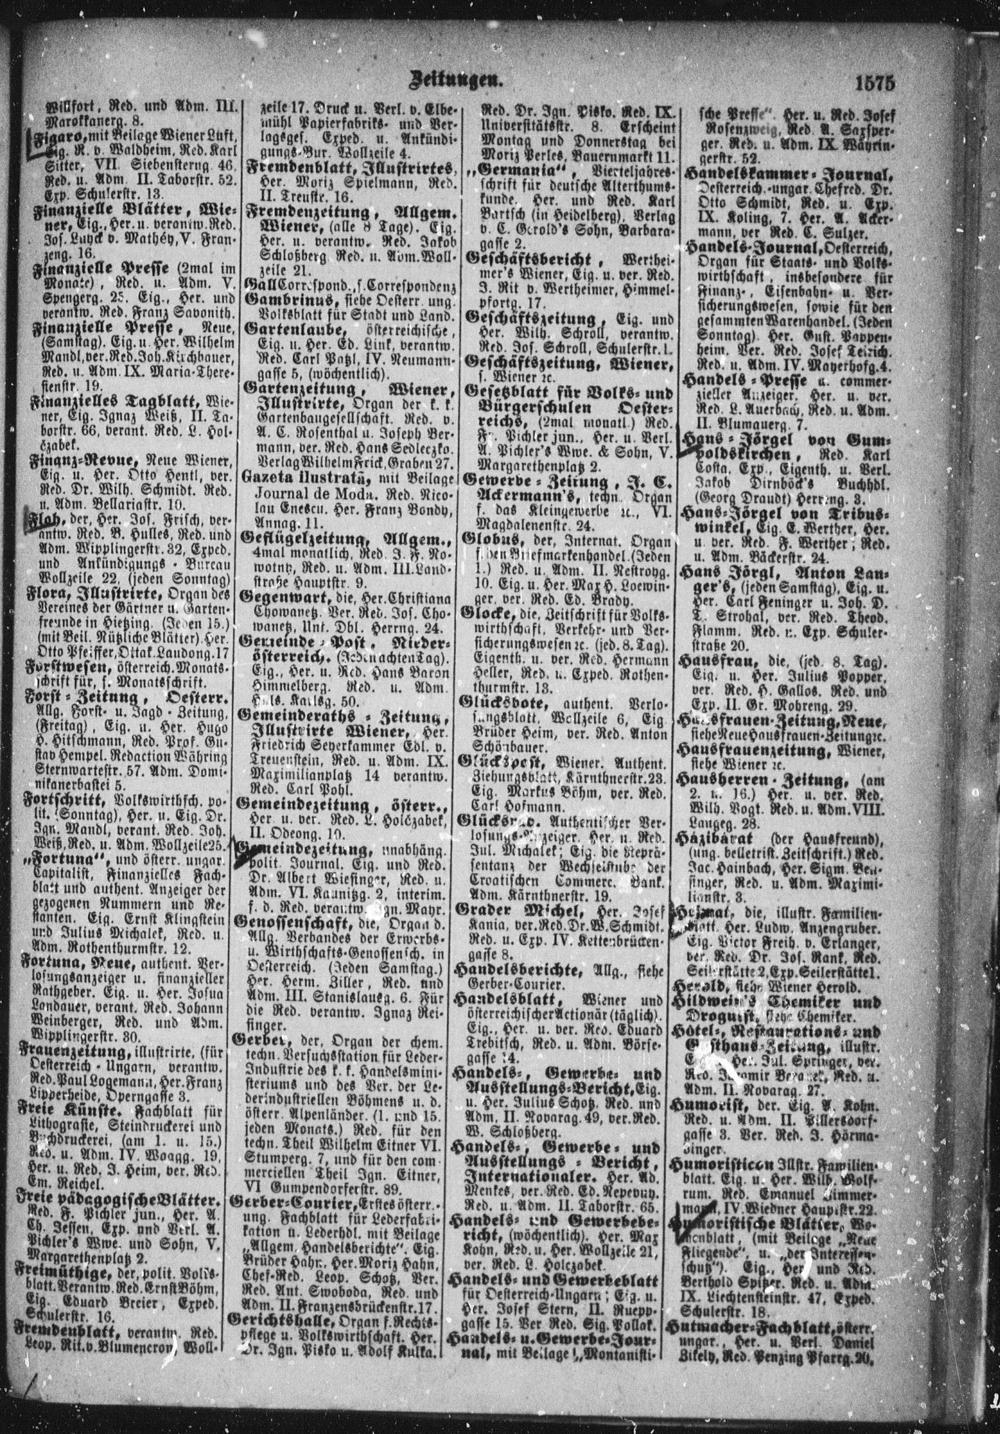 Zeitungen.
1575
Willfort, Red. und Adm. III.
Marokkanerg. 8.
Figaro, mit Beilage Wiener Luft,
Eig. R. v. Waldheim, Red. Karl
Sitter, VII. Siebensterng. 46.
Red. u. Adm II. Taborstr. 52.
Exp. Schulerstr. 13.
Finanzielle Blätter, Wie-
ner, Eig., Her. u. verantw. Red.
Jos. Luyck v. Mathéy, V. Fran-
zeng. 16.
Finanzielle Presse (2mal im
Monate), Red. u. Adm. V.
Spengerg. 25. Eig., Her. und
verantw. Red. Franz Savonith.
Finanzielle Presse, Neue,
(Samstag). Eig. u. Her. Wilhelm
Mandl, ver. Red. Joh. Kirchbauer,
Red. u. Adm. IX. Maria-There-
sienstr. 19.
Finanzielles Tagblatt, Wie-
ner, Eig. Ignaz Weiß, II. Ta-
borstr. 66, verant. Red. L. Hol-
čzabek.
Finanz-Revue, Neue Wiener,
Eig. u. Her. Otto Hentl, ver.
Red. Dr. Wilh. Schmidt. Red.
u. Adm. Bellariastr. 10.
Floh, der, Her. Jos. Frisch, ver-
antw. Red. B. Hulles, Red. und
Adm. Wipplingerstr. 32, Exped.
und Ankündigungs-Bureau
Wollzeile 22, (jeden Sonntag)
Flora, Illustrirte, Organ des
Vereines der Gärtner u. Garten-
freunde in Hietzing. (Jeden 15.)
(mit Beil. Nützliche Blätter). Her.
Otto Pfeiffer, Ottak. Laudong. 17
Forstwesen, österreich. Monats-
schrift für, s. Monatsschrift.
Forst-Zeitung, Oesterr.
Allg. Forst- u. Jagd-Zeitung,
(Freitag), Eig. u. Her. Hugo
H. Hitschmann, Red. Prof. Gu-
stav Hempel. Redaction Währing
Sternwartestr. 57. Adm. Domi-
nikanerbastei 5.
Fortschritt, Volkswirthsch. po-
lit. (Sonntag), Her. u. Eig. Dr.
Ign. Mandl, verant. Red. Joh.
Weiß, Red. u. Adm. Wollzeile 25.
„Fortuna", und österr. ungar.
Capitalist, Finanzielles Fach-
blatt und authent. Anzeiger der
gezogenen Nummern und Re-
stanten. Eig. Ernst Klingstein
und Julius Michalek, Red. u.
Adm. Rothenthurmstr. 12.
Fortuna, Neue, authent. Ver-
losungsanzeiger u. finanzieller
Rathgeber. Eig. u. Her. Josua
Londauer, verant. Red. Johann
Weinberger, Red. und Adm.
Wipplingerstr. 30.
Frauenzeitung, illustrirte, (für
Oesterreich-Ungarn, verantw.
Red. Paul Logemann, Her. Franz
Lipperheide, Operngasse 3.
Freie Künste. Fachblatt für
Lithografie, Steindruckerei und
Buchdruckerei, (am 1. u. 15.)
Red. u. Adm. IV. Waagg. 19,
Her. u. Red. J. Heim, ver. Red.
Em. Reichel.
Freie pädagogische Blätter.
Red. F. Pichler jun., Her. A.
Ch. Jessen, Exp. und Verl. A.
Pichler's Wwe. und Sohn, V.
Margarethenplatz 2.
Freimüthige, der, polit. Volks-
blatt. Verantw. Red. Ernst Böhm,
Eig. Eduard Breier, Exped.
Schulerstr. 16.
Fremdenblatt, verantw. Red.
Leop. Rit. v. Blumencron, Woll-
zeile 17. Druck u. Verl. v. Elbe-
mühl Papierfabriks- und Ver-
lagsges. Exped. u. Ankündi-
gungs-Bur. Wollzeile 4.
Fremdenblatt, Illustrirtes,
Her. Moriz Spielmann, Red.
II. Treustr. 16.
Fremdenzeitung, Allgem.
Wiener, (alle 8 Tage). Eig.
Her. u. verantw. Red. Jakob
Schloßberg Red. u. Adm. Woll-
zeile 21.
Gall Correspond., s. Correspondenz
Gambrinus, siehe Oesterr. ung.
Volksblatt für Stadt und Land.
Gartenlaube, österreichische,
Eig. u. Her. Ed. Link, verantw.
Red. Carl Patzl, IV. Neumann-
gasse 5, (wöchentlich).
Gartenzeitung, Wiener,
Illustrirte, Organ der k. k.
Gartenbaugesellschaft. Red. v.
A. C. Rosenthal u. Joseph Ber-
mann, ver. Red. Hans Sedleczko.
Verlag Wilhelm Frick, Graben 27.
Gazeta Ilustrată, mit Beilage
Journal de Moda. Red. Nico-
lau Enescu. Her. Franz Bondy,
Annag. 11.
Geflügelzeitung, Allgem.,
4mal monatlich, Red. J. F. No-
wotny, Red. u. Adm. III. Land-
straße Hauptstr. 9.
Gegenwart, die, Her. Christiana
Chowanetz, Ver. Red. Jos. Cho-
wanetz, Unt. Dbl. Herrng. 24.
Gemeinde-Post, Nieder-
österreich. (Jeden achten Tag).
Eig., Her. u. Red. Hans Baron
Himmelberg. Red. u. Adm.
Hals. Karlsg. 50.
Gemeinderaths-Zeitung,
Illustrirte Wiener, Her.
Friedrich Seyerkammer Edl. v.
Treuenstein, Red. u. Adm. IX.
Maximilianplatz 14 verantw.
Red. Carl Pohl.
Gemeindezeitung, österr.,
Her. u. ver. Red. L. Holčzabek,
II. Odeong. 10.
Gemeindezeitung, unabhäng.
polit. Journal. Eig. und Red.
Dr. Albert Wiesinger, Red. u.
Adm. VI. Kaunitzg. 2, interim.
f. d. Red. verantw. Ign. Mayr.
Genossenschaft, die, Organ d.
Allg. Verbandes der Erwerbs-
u. Wirthschafts-Genossensch. in
Oesterreich. (Jeden Samstag.)
Her. Herm. Ziller, Red. und
Adm. III. Stanislausg. 6. Für
die Red. verantw. Ignaz Rei-
singer.
Gerber, der, Organ der chem.
techn. Versuchsstation für Leder-
Industrie des k. k. Handelsmini-
steriums und des Ver. der Le-
derindustriellen Böhmens u. d.
österr. Alpenländer. (1. und 15.
jeden Monats.) Red. für den
techn. Theil Wilhelm Eitner VI.
Stumperg. 7, und für den com-
merciellen Theil Ign. Eitner,
VI Gumpendorferstr. 89.
Gerber-Courier, Erstes österr.-
ung. Fachblatt für Lederfabri-
kation u. Lederhdl. mit Beilage
„Allgem. Handelsberichte". Eig.
Brüder Hahn, Her. Moriz Hahn,
Chef-Red. Leop. Schotz, Ver.
Red. Ant. Swoboda, Red. und
Adm. II. Franzensbrückenstr. 17.
Gerichtshalle, Organ f. Rechts-
pflege u. Volkswirthschaft. Her.
Dr. Ign. Pisko u. Adolf Kulka.
Red. Dr. Ign. Pisko. Red. IX.
Universitätsstr. 8. Erscheint
Montag und Donnerstag bei
Moriz Perles, Bauernmarkt 11.
„Germania", Vierteljahres-
schrift für deutsche Alterthums-
kunde. Her. und Red. Karl
Bartsch (in Heidelberg), Verlag
v. C. Gerold's Sohn, Barbara-
gasse 2.
Geschäftsbericht, Werthei-
mer's Wiener, Eig. u. ver. Red.
J. Rit v. Wertheimer, Himmel-
pfortg. 17.
Geschäftszeitung, Eig. und
Her. Wilh. Schroll, verantw.
Red. Jos. Schroll, Schulerstr. 1.
Geschäftszeitung, Wiener,
s. Wiener ꝛc.
Gesetzblatt für Volks- und
Bürgerschulen Oester-
reichs, (2mal monatl.) Red.
F. Pichler jun., Her. u. Verl.
A. Pichler's Wwe. & Sohn, V.
Margarethenplatz 2.
Gewerbe-Zeitung, J. C.
Ackermann's, techn. Organ
f. das Kleingewerbe ꝛc., VI.
Magdalenenstr. 24.
Globus, der, Internat. Organ
f. den Briefmarkenhandel. (Jeden
1.) Red. u. Adm. II. Nestroyg.
10. Eig. u. Her. Max H. Loewin-
ger, ver. Red. Ed. Brady.
Glocke, die, Zeitschrift für Volks-
wirthschaft, Verkehr- und Ver-
sicherungswesen ꝛc. (jed. 8. Tag).
Eigenth. u. ver. Red. Hermann
Heller, Red. u. Exped. Rothen-
thurmstr. 13.
Glücksbote, authent. Verlo-
sungsblatt, Wollzeile 6, Eig.
Brüder Heim, ver. Red. Anton
Schönbauer.
Glückspost, Wiener. Authent.
Ziehungsblatt, Kärnthnerstr. 23.
Eig. Markus Böhm, ver. Red.
Carl Hofmann.
Glücksrad. Authentischer Ver-
losungs-Anzeiger. Her. u. Red.
Jul. Michalek; Eig. die Reprä-
sentanz der Wechselstube der
Croatischen Commerc. Bank.
Adm. Kärnthnerstr. 19.
Grader Michel, Her. Josef
Kania, ver. Red. Dr. W. Schmidt.
Red. u. Exp. IV. Kettenbrücken-
gasse 8.
Handelsberichte, Allg., siehe
Gerber-Courier.
Handelsblatt, Wiener und
österreichischer Actionär (täglich).
Eig., Her. u. ver. Red. Eduard
Trebitsch, Red. u. Adm. Börse-
gasse 14.
Handels-, Gewerbe- und
Ausstellungs-Bericht, Eig.
u. Her. Julius Schotz. Red. und
Adm. II. Novarag. 49, ver. Red.
W. Schloßberg.
Handels-, Gewerbe- und
Ausstellungs-Bericht,
Internationaler. Her. Ad.
Menkes, ver. Red. Ed. Nepevny.
Red. u. Adm. II. Taborstr. 65.
Handels- und Gewerbebe-
richt, (wöchentlich). Her. Max
Kohn, Red. u. Her. Wollzeile 21,
ver. Red. L. Holczabek.
Handels- und Gewerbeblatt
für Oesterreich-Ungarn; Eig. u.
Her. Josef Stern, II. Ruepp-
gasse 15. Ver Red. Sig. Pollak.
Handels- u. Gewerbe-Jour-
nal, mit Beilage „Montanisti-
sche Presse". Her. u. Red. Josef
Rosenzweig, Red. A. Saxsper-
ger. Red. u. Adm. IX. Währin-
gerstr. 52.
Handelskammer-Journal,
Oesterreich.-ungar. Chefred. Dr.
Otto Schmidt, Red. u. Exp.
IX. Koling. 7. Her. A. Acker-
mann, ver Red. C. Sulzer.
Handels-Journal, Oesterreich,
Organ für Staats- und Volks-
wirthschaft, insbesondere für
Finanz-, Eisenbahn- u. Ver-
sicherungswesen, sowie für den
gesammten Warenhandel. (Jeden
Sonntag). Her. Gust. Pappen-
heim, Ver. Red. Josef Teirich.
Red. u. Adm. IV. Mayerhofg. 4.
Handels-Presse u. commer-
zieller Anzeiger, Her. u. ver.
Red. L. Auerbach, Red. u. Adm.
II. Blumauerg. 7.
Hans-Jörgel von Gum-
poldskirchen, Red. Karl
Costa, Exp., Eigenth. u. Verl.
Jakob Dirnböck's Buchhdl.
(Georg Draudt) Herreng. 3.
Hans-Jörgel von Tribus-
winkel, Eig. E. Werther, Her.
u. ver. Red. F. Werther; Red.
u. Adm. Bäckerstr. 24.
Hans Jörgl, Anton Lan-
ger's, (jeden Samstag), Eig. u.
Her. Carl Feninger u. Joh. D.
T. Strohal, ver. Red. Theod.
Flamm. Red. u. Exp. Schuler-
straße 20.
Hausfrau, die, (jed. 8. Tag).
Eig. u. Her. Julius Popper,
ver. Red. H. Gallos. Red. und
Exp. II. Gr. Mohreng. 29.
Hausfrauen-Zeitung, Neue,
siehe Neue Hausfrauen-Zeitung ꝛc.
Hausfrauenzeitung, Wiener,
siehe Wiener ꝛc.
Hausherren-Zeitung, (am
2. u. 16.) Her. u. ver. Red.
Wilh. Vogt. Red. u. Adm. VIII.
Laugeg. 28.
Házibarát (der Hausfreund),
(ung. belletrist. Zeitschrift.) Red.
Jac. Hainbach, Her. Sigm. Ben-
singer, Red. u. Adm. Maximi-
lianstr. 3.
Heimat, die, illustr. Familien-
blatt. Her. Ludw. Anzengruber.
Eig. Victor Freih. v. Erlanger,
ver. Red. Dr. Jos. Rank, Red.
Seilerstätte 2, Exp. Seilerstätte 1.
Herold, siehe Wiener Herold.
Hildwein's Chemiker und
Droguist, siehe Chemiker.
Hôtel-, Restaurations- und
Gasthaus-Zeitung, illustr.
Her. Jul. Springer, ver.
Red. Jaromir Red. u.
Adm. II. Novarag. 27.
Humorist, der. Eig. A. Kohn.
Red. u. Adm. II. Pillersdorf-
gasse 3. Ver. Red. J. Hörma-
dinger.
Humoristicon Illstr. Familien-
blatt. Eig. u. Her. Wilh. Wolf-
rum. Red. Emanuel Zimmer-
mann, IV. Wiedner Hauptstr. 22.
Humoristische Blätter, Wo-
chenblatt, (mit Beilage „Neue
Fliegende" u. „der Interessen-
schutz"). Eig., Her und Red.
Berthold Spitzer. Red. u. Adm.
IX. Liechtensteinstr. 47, Exped.
Schulerstr. 18.
Hutmacher-Fachblatt, österr.
ungar., Her. u. Verl. Daniel
Zikely, Red. Penzing Pfarrg. 20.